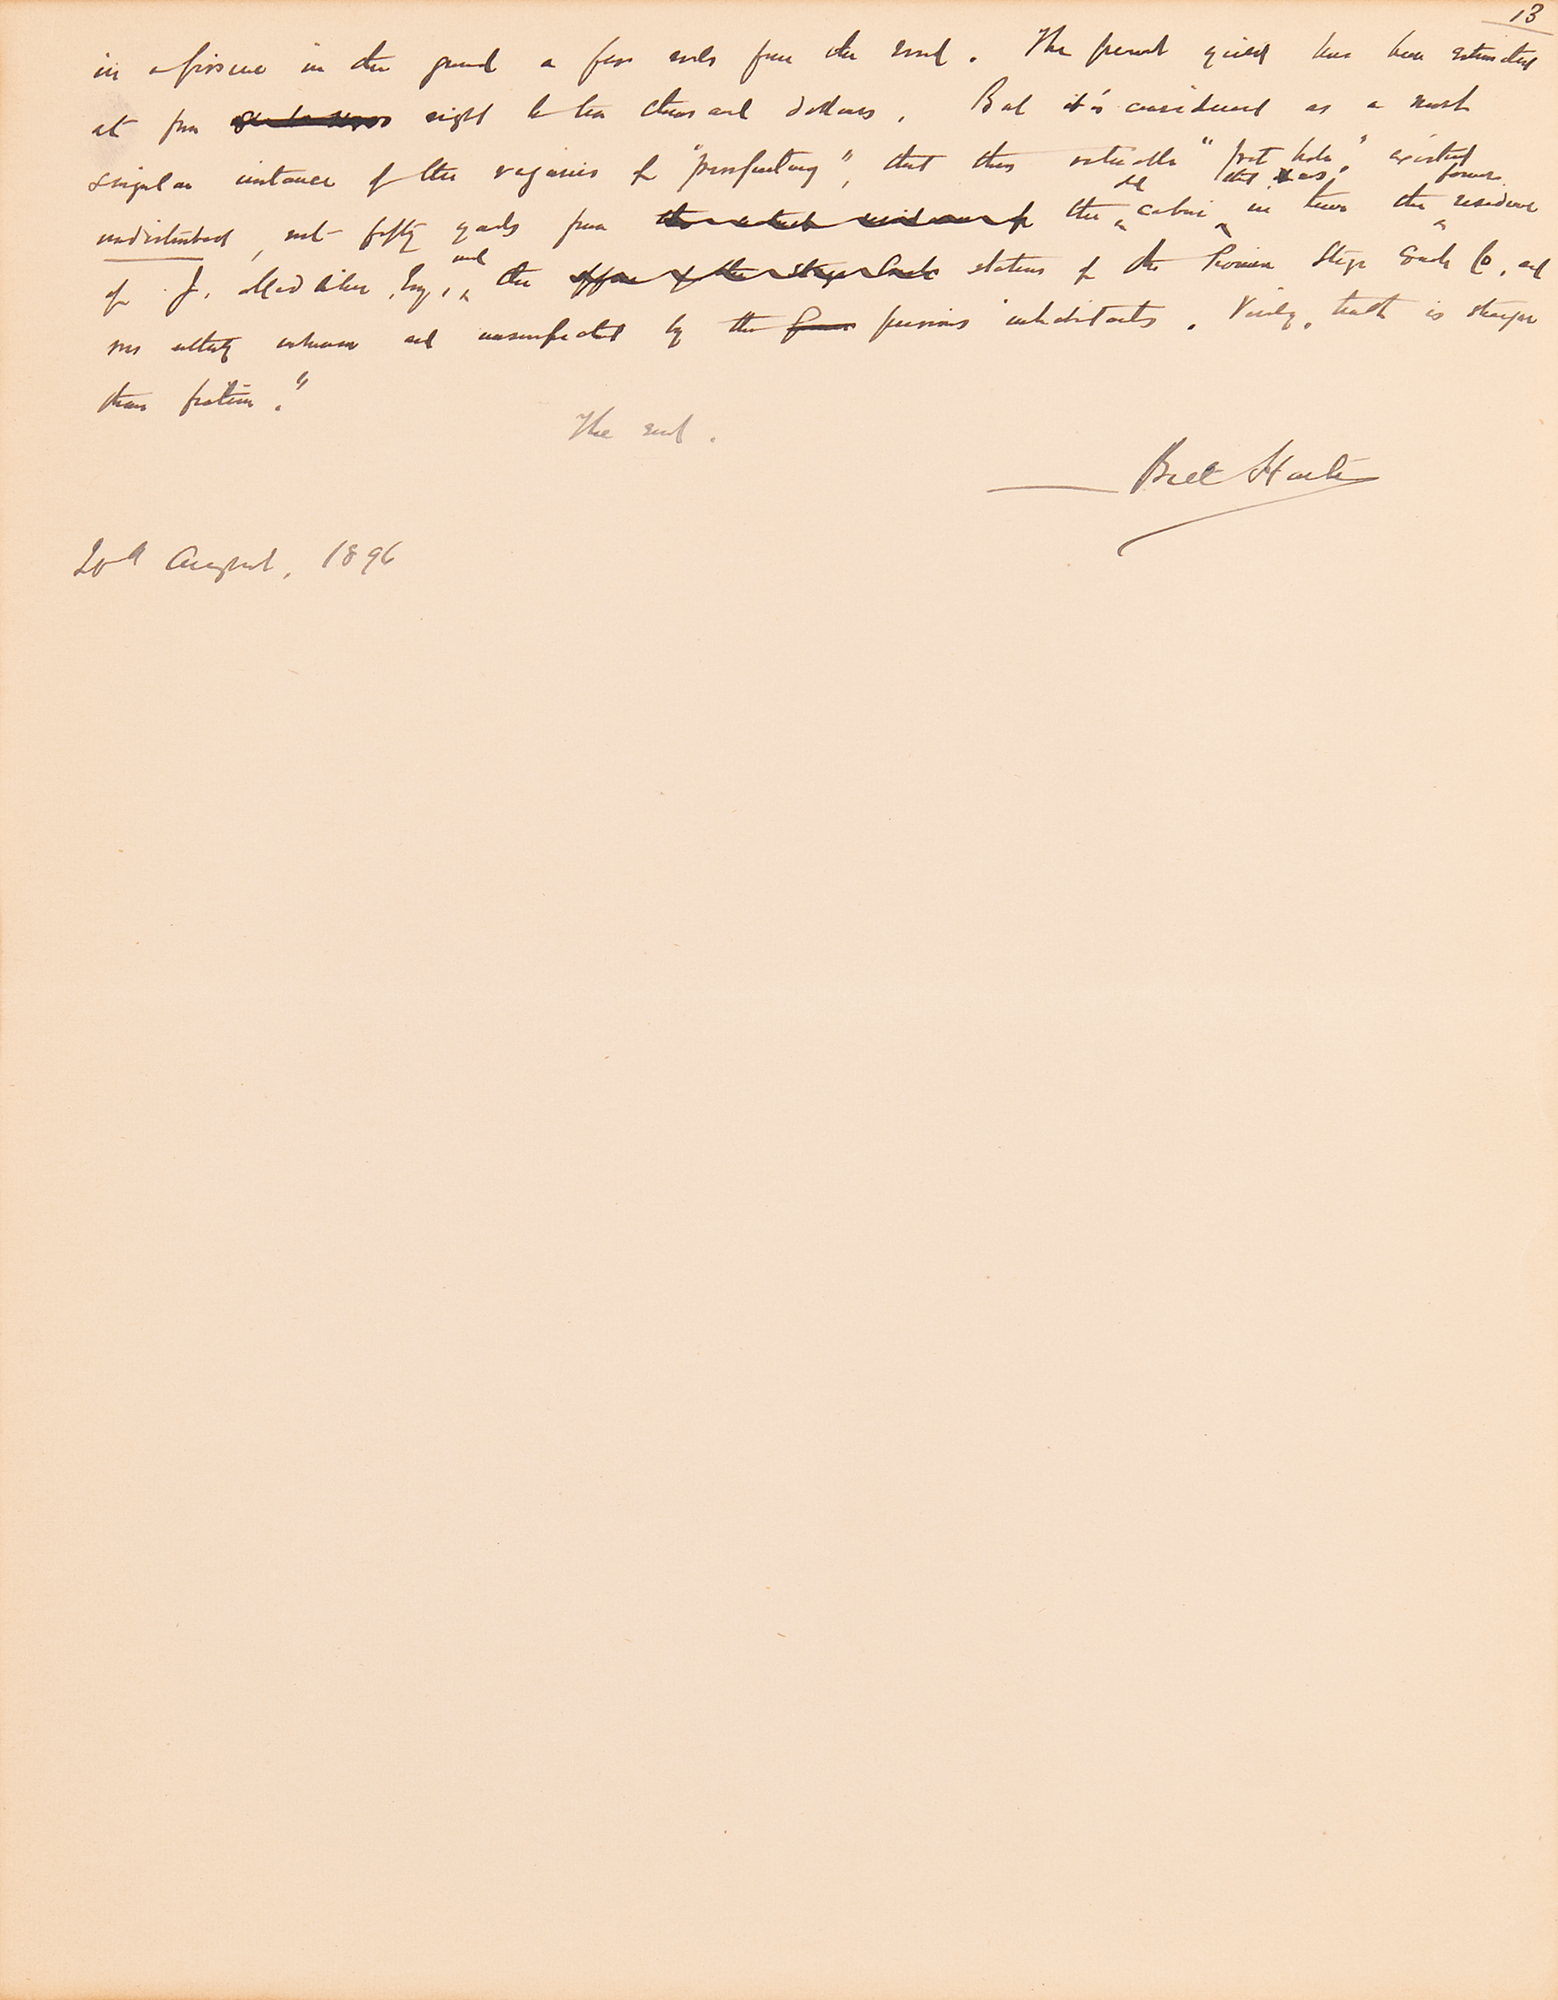 13
in a fissure in the ground a few rods from the road. The present yield has been estimated
at from eight to ten thousand dollars. But it is considered as a most
singular instance of the vagaries of "prospecting", that this valuable "pot hole" existed
undisturbed, not fifty yards from the old cabin that was, in turn the former residence
of J. Medliker, Esq., and the station of the Pioneer Stage Coach Co, and
was utterly unknown and unsuspected by the previous inhabitants. Verily, truth is stranger
than fiction."
The end.
Bret Harte
20th August, 1896